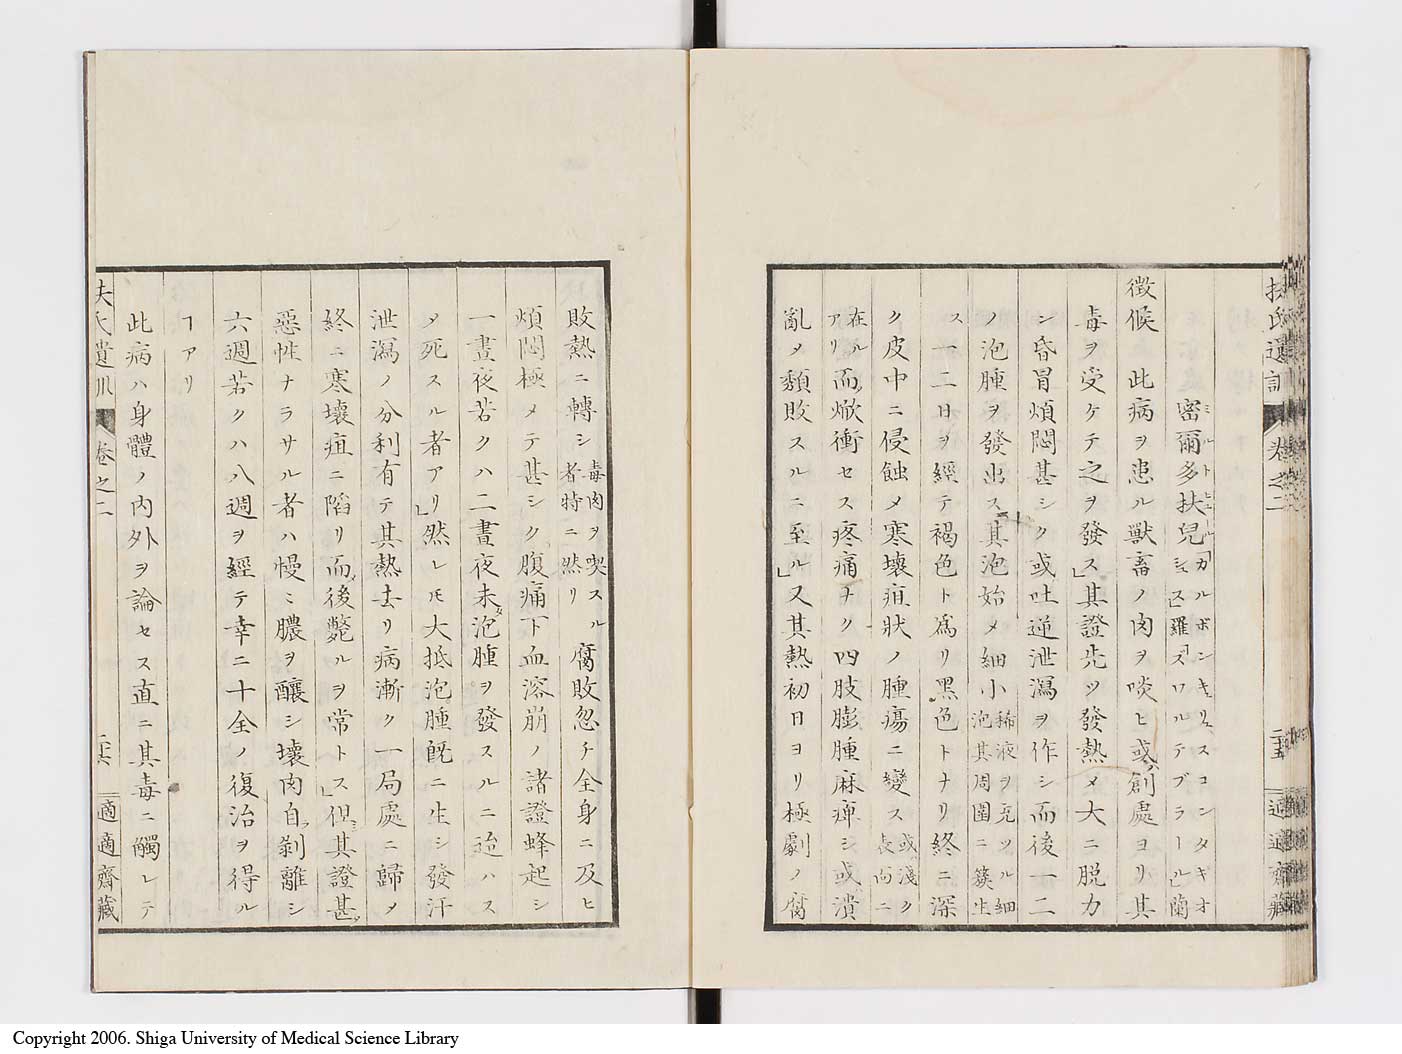 扶氏遺訓 卷之二 二十五 適適齋藏
密爾多扶兒 「カルボンキュリュス コンタギオシュス」羅「ズワルテ ブラール」蘭
ミルトヒュール
徴候 此病ヲ患ル獸畜ノ肉ヲ啖ヒ或創處ヨリ其
毒ヲ受ケテ之ヲ發ス」其證先ツ發熱メ大ニ脱力
シ昏冒煩悶甚シク或吐逆泄瀉ヲ作シ而後一二
ノ泡腫ヲ發出ス其泡始メ細小 稀液ヲ充ツル細泡其周圍ニ簇生
ス 一二日ヲ經テ褐色ト爲リ黑色トナリ終ニ深
ク皮中ニ侵蝕メ寒壞疽狀ノ腫瘍ニ變ス 或淺ク表向ニ
在ルアリ 而焮衝セス疼痛ナク四肢膨腫麻痺シ或潰
亂メ頽敗スルニ至ル」又其熱初日ヨリ極劇ノ腐
敗熱ニ轉シ 毒肉ヲ喫スル者特ニ然リ 腐敗忽チ全身ニ及ヒ
煩悶極メテ甚シク腹痛下血溶崩ノ諸證蜂起シ
一晝夜若クハ二晝夜未タ泡腫ヲ發スルニ迨ハス
メ死スル者アリ」然レ𪜈大抵泡腫既ニ生シ發汗
泄瀉ノ分利有テ其熱去リ病漸ク一局處ニ歸メ
終ニ寒壞疽ニ陷リ而後斃ルヲ常トス」但其證甚
惡性ナラサル者ハ慢ミ膿ヲ釀シ壞肉自剝離シ
六週若クハ八週ヲ經テ幸ニ十全ノ復治ヲ得ル
ヿアリ
此病ハ身體ノ内外ヲ論セス直ニ其毒ニ觸レテ
扶氏遺訓 卷之二 二十六 適適齋藏
Copyright 2006. Shiga University of Medical Science Library